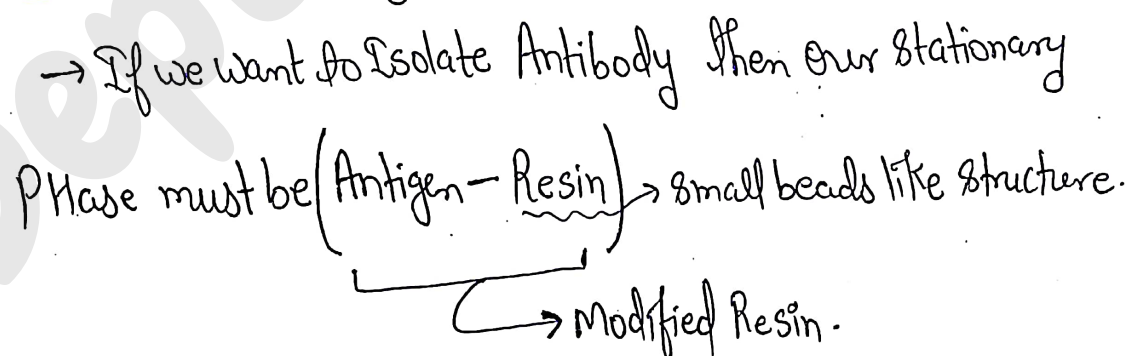 → If we want to Isolate Antibody then our stationary
PHase must be (Antigen - Resin) → small beads like structure.
→ Modified Resin.